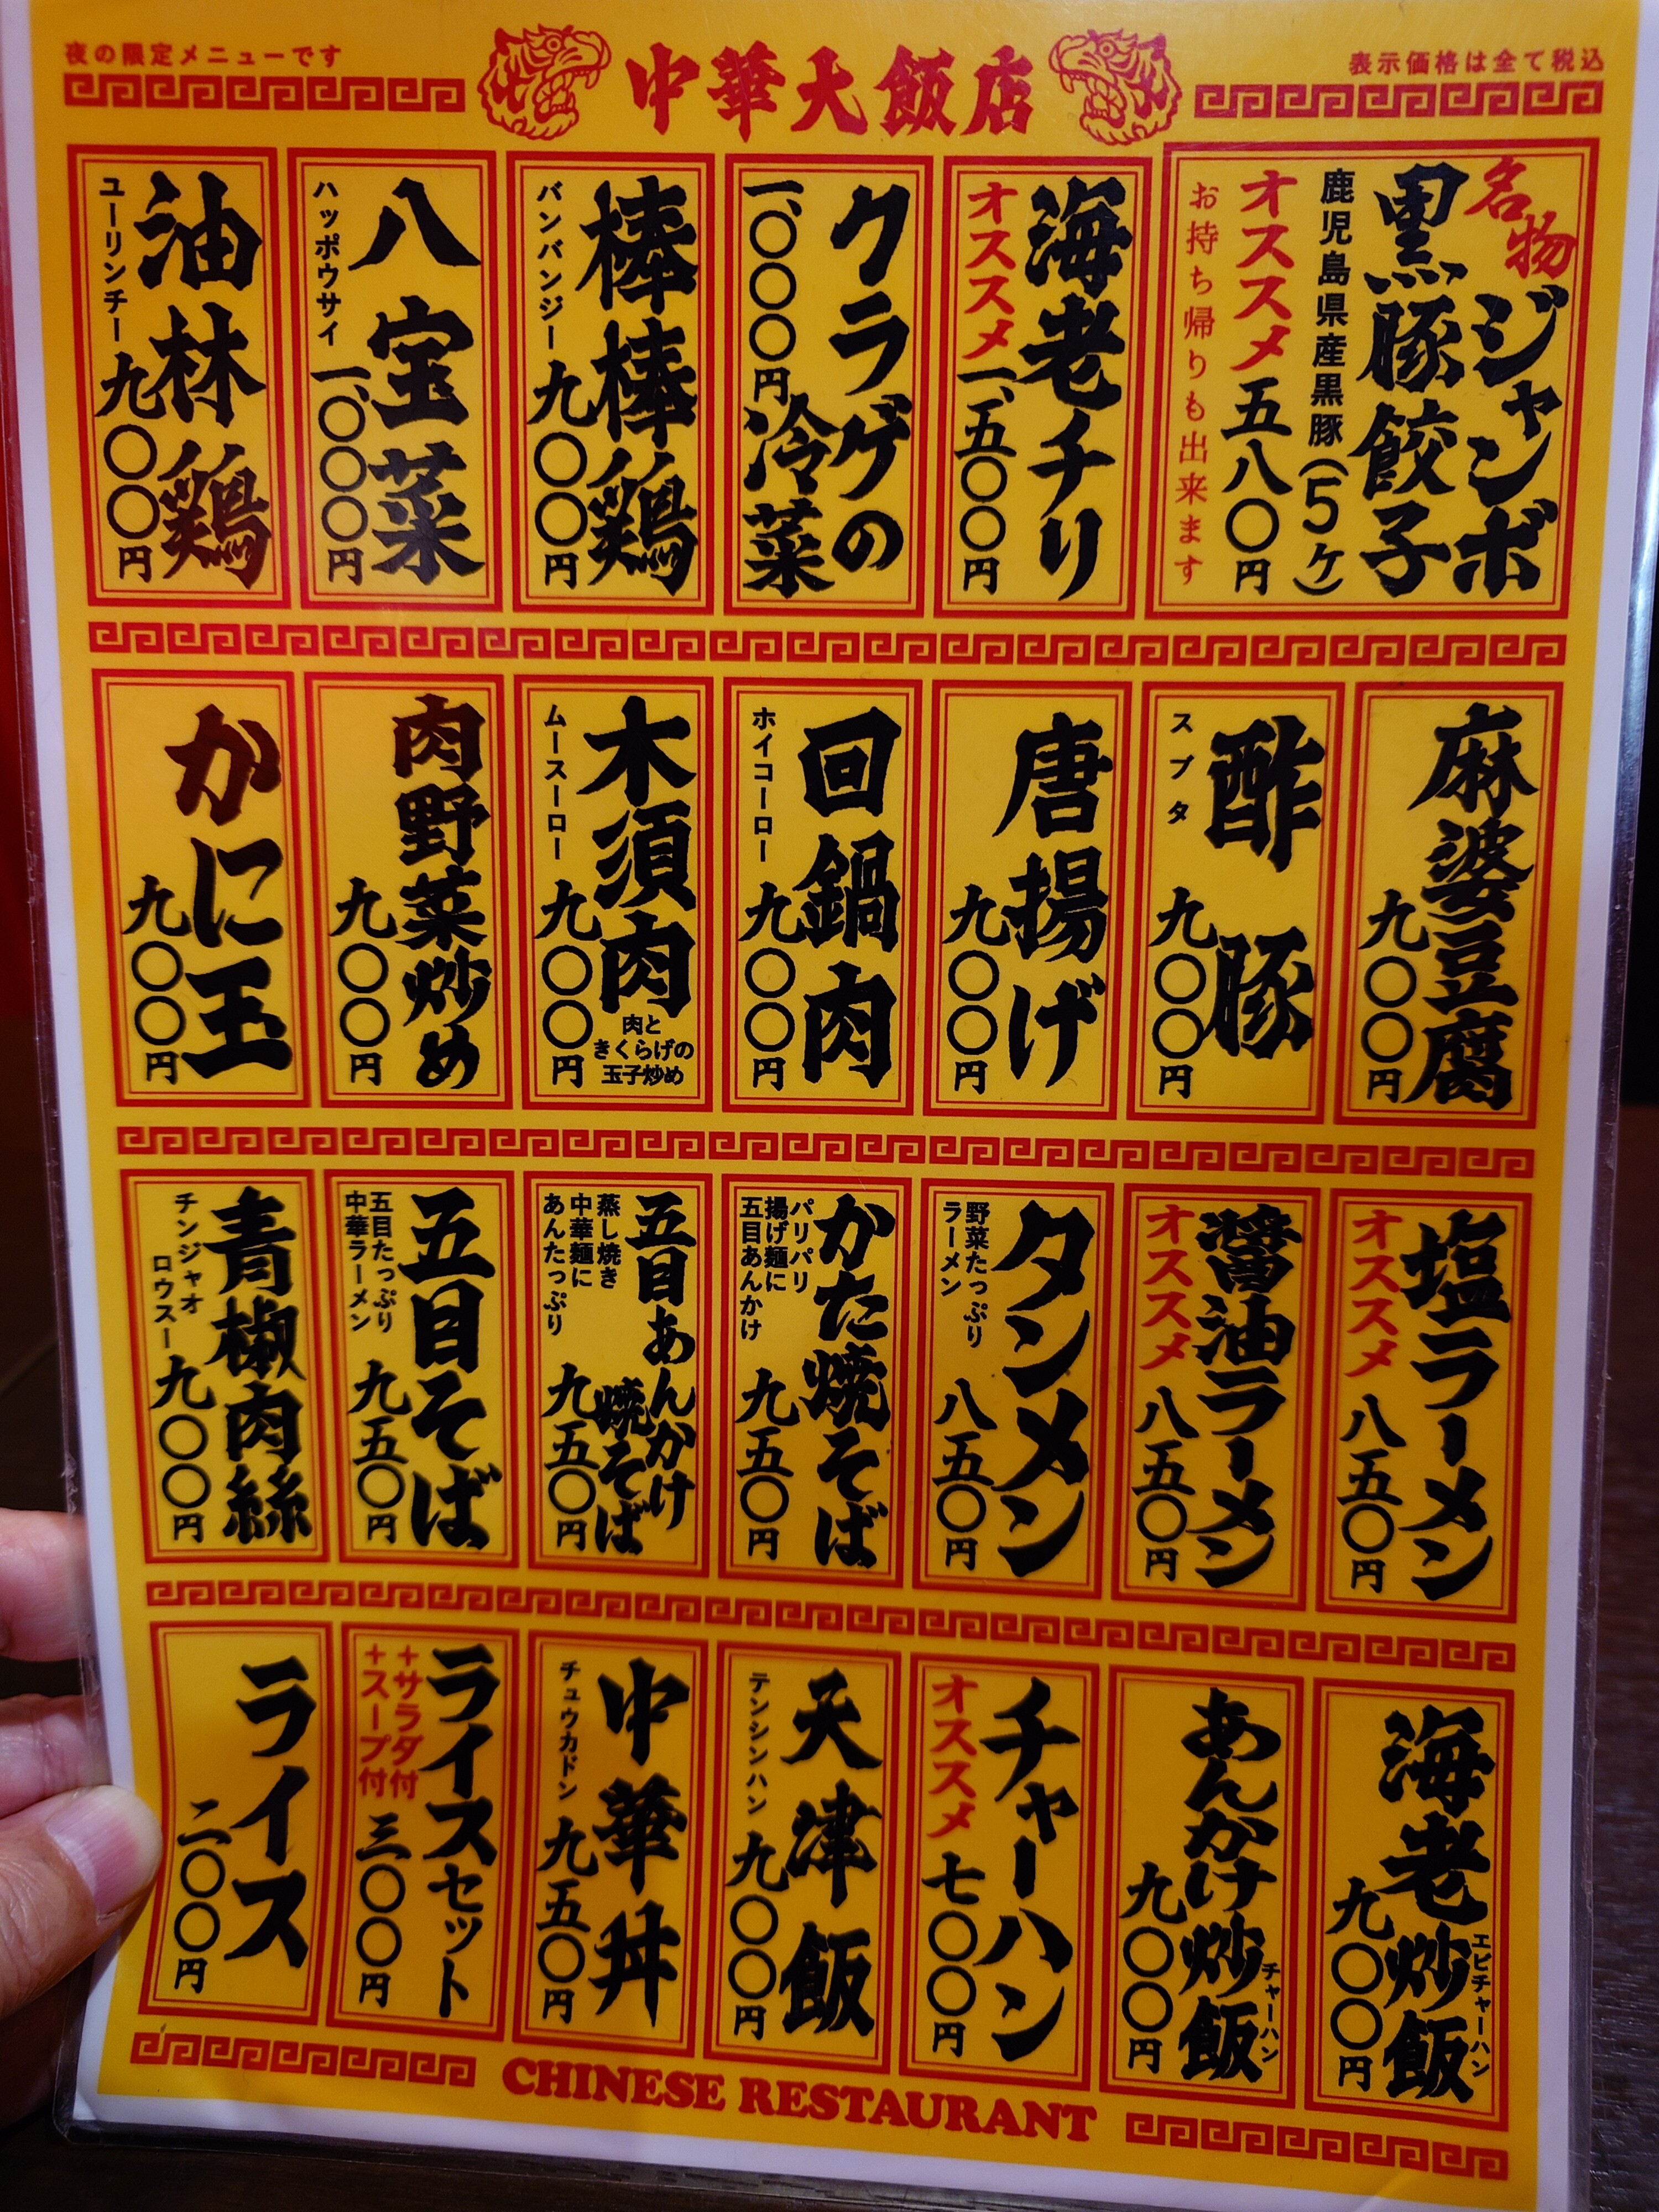 夜の限定メニューです
中華大飯店
表示価格は全て税込
名物
ジャンボ
黒豚餃子
鹿児島県産黒豚(5ケ)
オススメ
五八〇円
お持ち帰りも出来ます
海老チリ
オススメ
一、五〇〇円
クラゲの
冷菜
一、〇〇〇円
棒棒鶏
バンバンジー
九〇〇円
八宝菜
ハッポウサイ
一、〇〇〇円
油林鶏
ユーリンチー
九〇〇円
麻婆豆腐
九〇〇円
酢豚
スブタ
九〇〇円
唐揚げ
九〇〇円
回鍋肉
ホイコーロー
九〇〇円
木須肉
肉と
きくらげの
玉子炒め
ムースーロー
九〇〇円
肉野菜炒め
九〇〇円
かに玉
九〇〇円
塩ラーメン
オススメ
八五〇円
醤油ラーメン
オススメ
八五〇円
タンメン
野菜たっぷり
ラーメン
八五〇円
かた焼そば
パリパリ
揚げ麺に
五目あんかけ
九五〇円
五目あんかけ
焼そば
蒸し焼き
中華麺に
あんたっぷり
九五〇円
五目そば
五目たっぷり
中華ラーメン
九五〇円
青椒肉絲
チンジャオ
ロウスー
九〇〇円
海老炒飯
エビチャーハン
九〇〇円
あんかけ炒飯
チャーハン
九〇〇円
チャーハン
オススメ
七〇〇円
天津飯
テンシンハン
九〇〇円
中華丼
チュウカドン
九五〇円
ライスセット
+サラダ付
+スープ付
三〇〇円
ライス
二〇〇円
CHINESE RESTAURANT